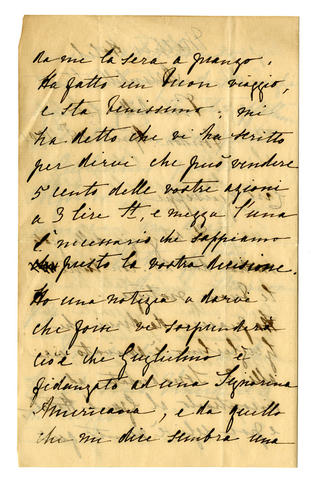 da me la sera a pranzo.
Ha fatto un buon viaggio,
e sta benissimo; mi
ha detto che vi ha scritto
per dirvi che può vendere
5 cento delle vostre azioni
a 3 lire St, e mezza l'una
È necessario che sappiamo
presto la vostra decisione.
Ho una notizia a darvi
che forse vi sorprenderà
cioè che Guglielmo è
fidanzato ad una Signorina
Americana, e da quello
che mi dice sembra una